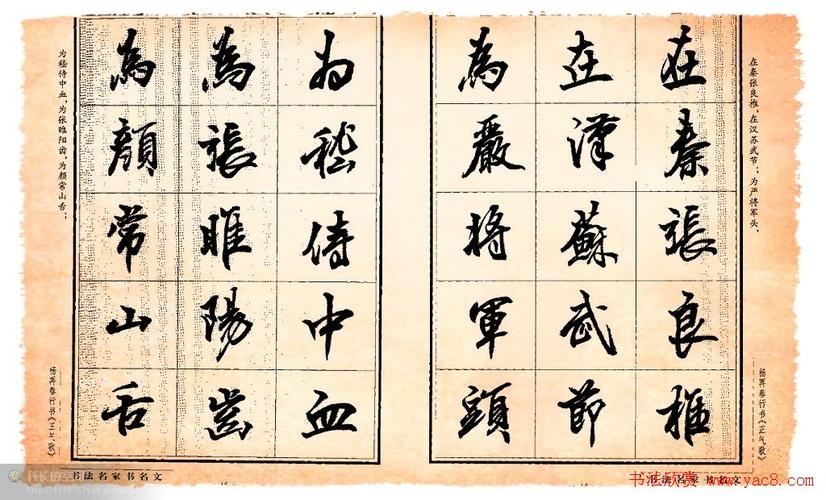 在秦张良椎，在汉苏武节；为严将军头，
杨再春行书《正气歌》
在秦張良椎
在漢蘇武節
為嚴將軍頭
为嵇侍中血
為張睢陽齒
為顏常山舌
为嵇侍中血，为张睢阳齿，为颜常山舌；
杨再春行书《正气歌》
书法名家书名文
书法欣赏 www.yac8.com